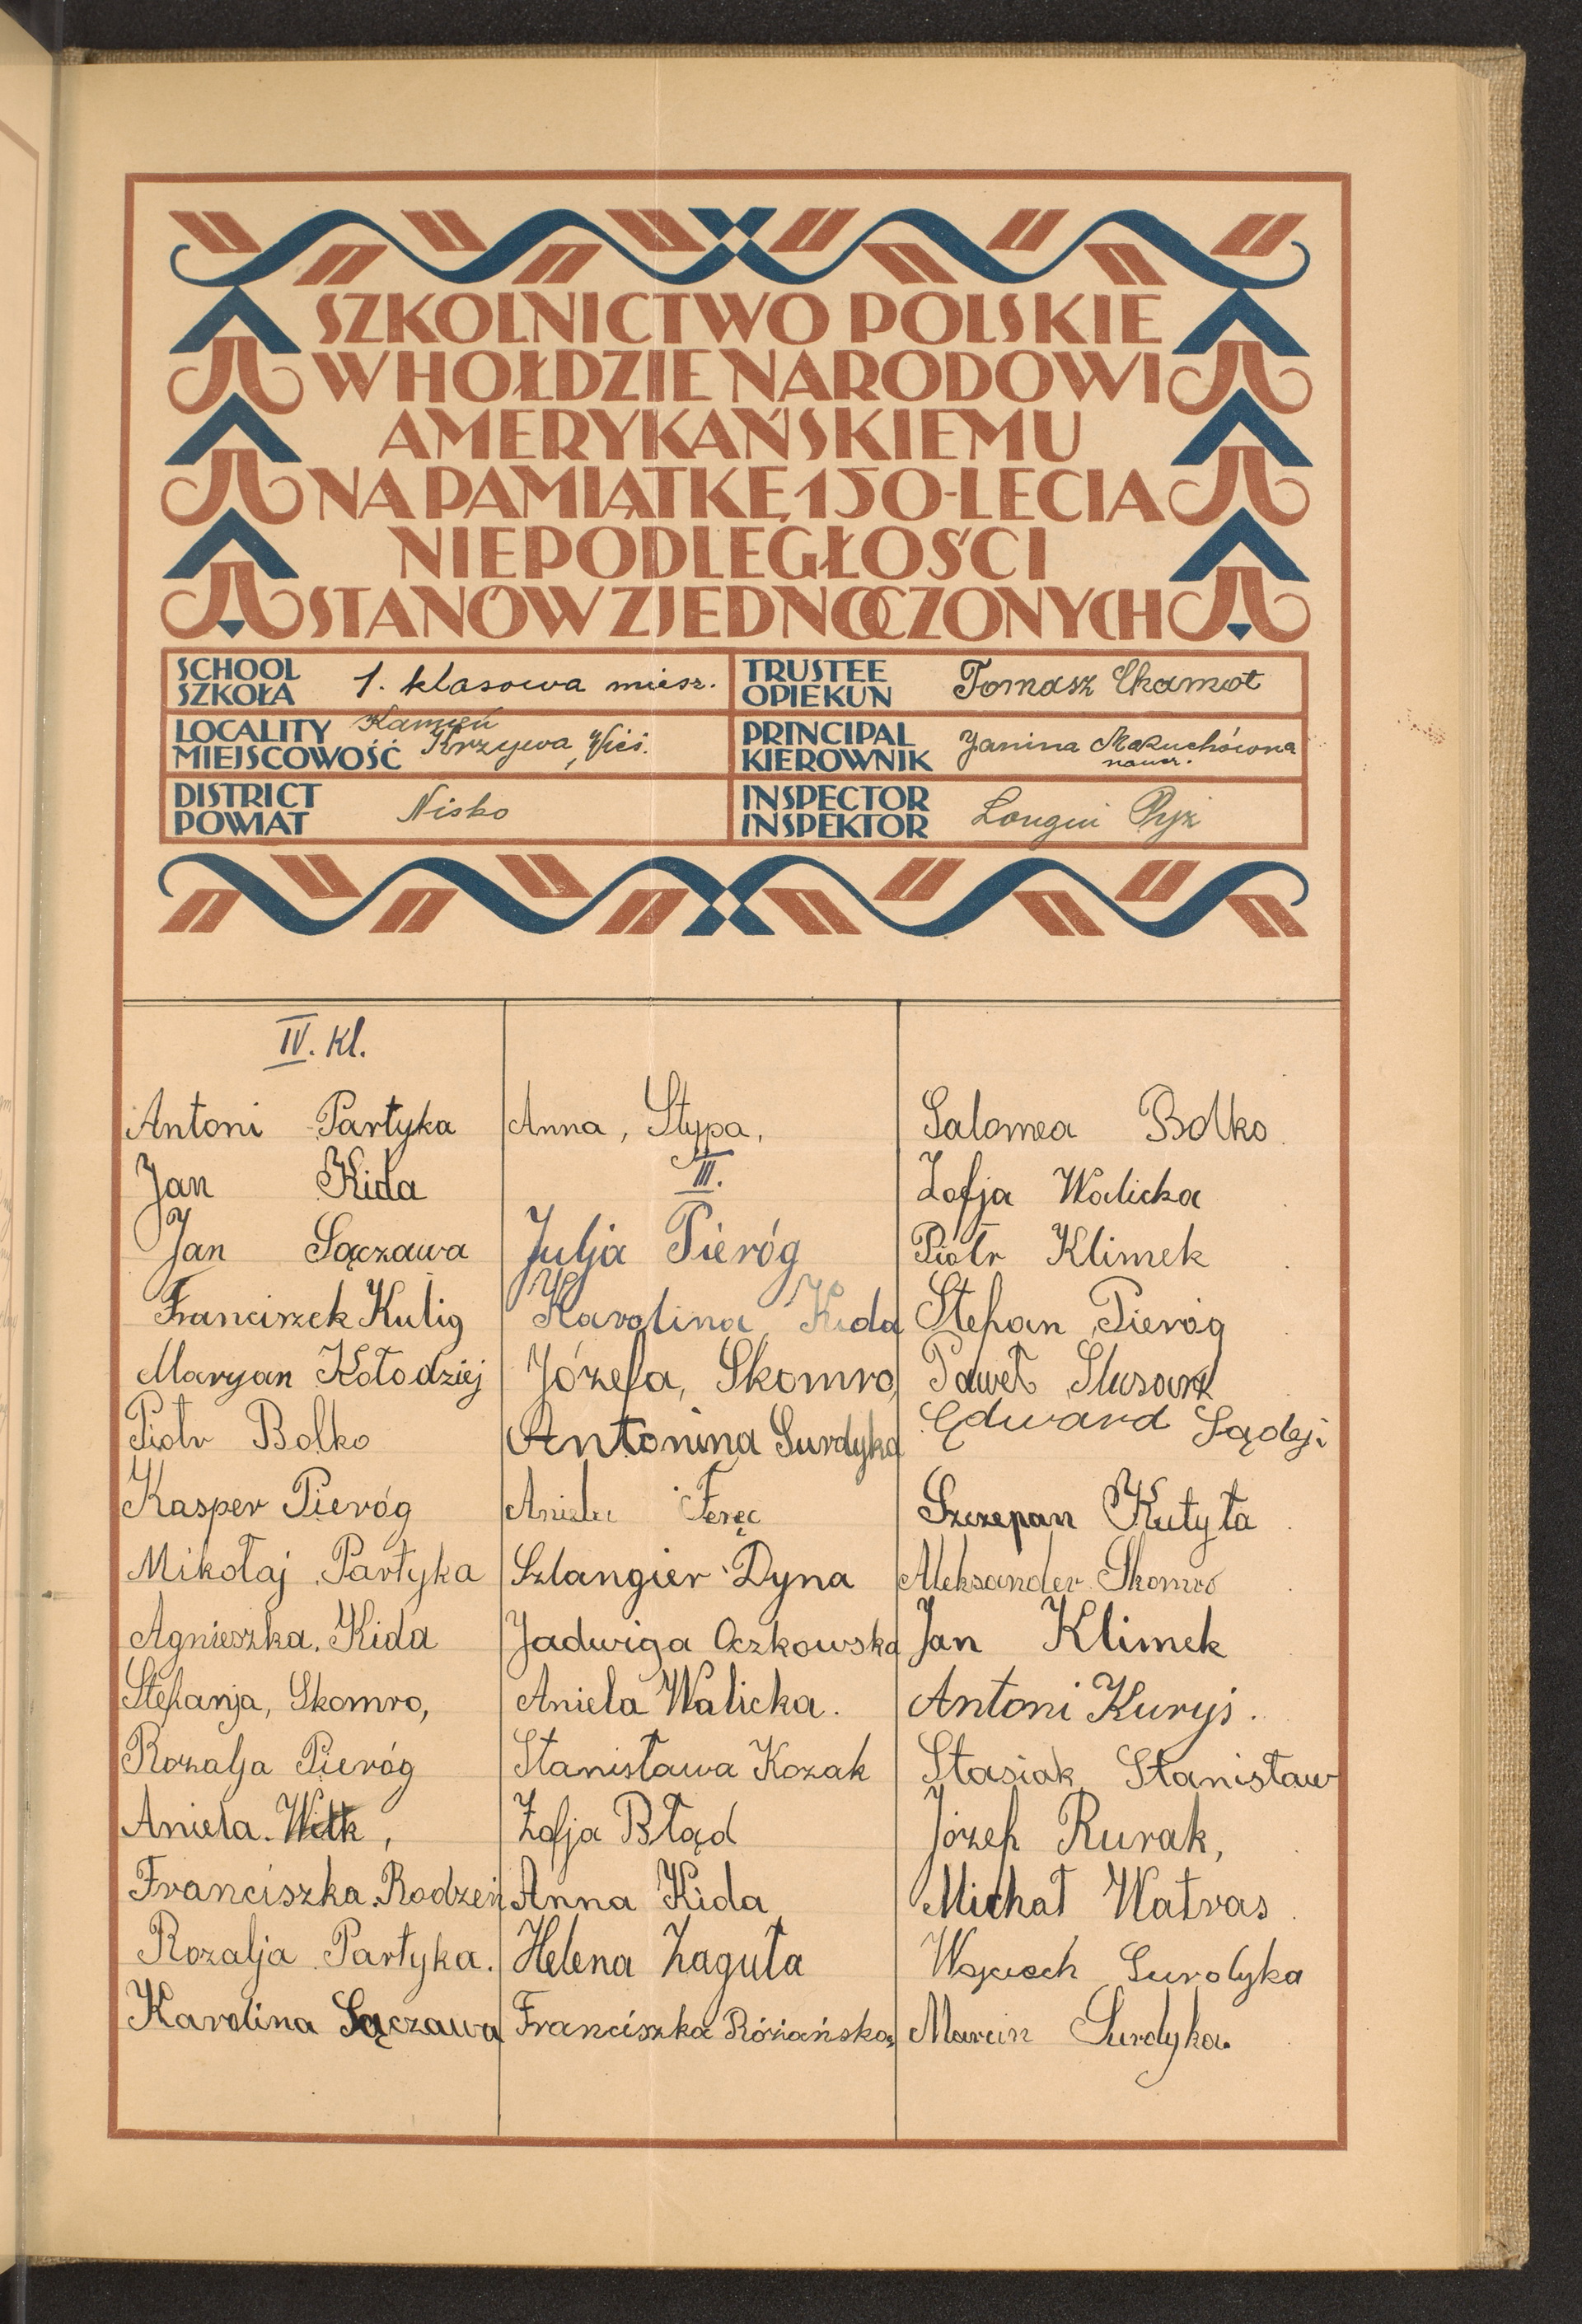 SZKOLNICTWO POLSKIE
W HOŁDZIE NARODOWI
AMERYKAŃSKIEMU
NA PAMIĄTKĘ 150-LECIA
NIEPODLEGŁOŚCI
STANÓW ZJEDNOCZONYCH
SCHOOL
SZKOŁA
1. klasowa miesz.
TRUSTEE
OPIEKUN
Tomasz Chamot
LOCALITY
MIEJSCOWOŚĆ
Kamień
Krzywa Wieś.
PRINCIPAL
KIEROWNIK
Janina Makuchówna
naucz.
DISTRICT
POWIAT
Nisko
INSPECTOR
INSPEKTOR
Longin Ryż
IV. Kl.
Antoni Partyka
Jan Kida
Jan Sączawa
Franciszek Kulig
Maryan Kołodziej
Piotr Bolko
Kasper Pieróg
Mikołaj Partyka
Agnieszka. Kida
Stefanja, Skomro,
Rozalja Pieróg
Aniela. Witk,
Franciszka. Rodzeń
Rozalja Partyka.
Karolina Sączawa
Anna, Stypa,
III.
Julja Pieróg
Karolina Kida
Józefa, Skomro,
Antonina Surdyka
Aniela Feręc
Szlangier Dyna
Jadwiga Oczkowska
Aniela Walicka.
Stanisława Kozak
Zofja Błąd
Anna Kida
Helena Zaguła
Franciszka Różańska,
Salomea Bolko.
Zofja Walicka
Piotr Klimek
Stefan Pieróg
Paweł Slusarz
Edward Sądej.
Szczepan Kutyła
Aleksander Skomro
Jan Klimek
Antoni Kuryś.
Stasiak Stanisław
Józef Rurak,
Michał Watras
Wojciech Surdyka
Marcin Surdyka.